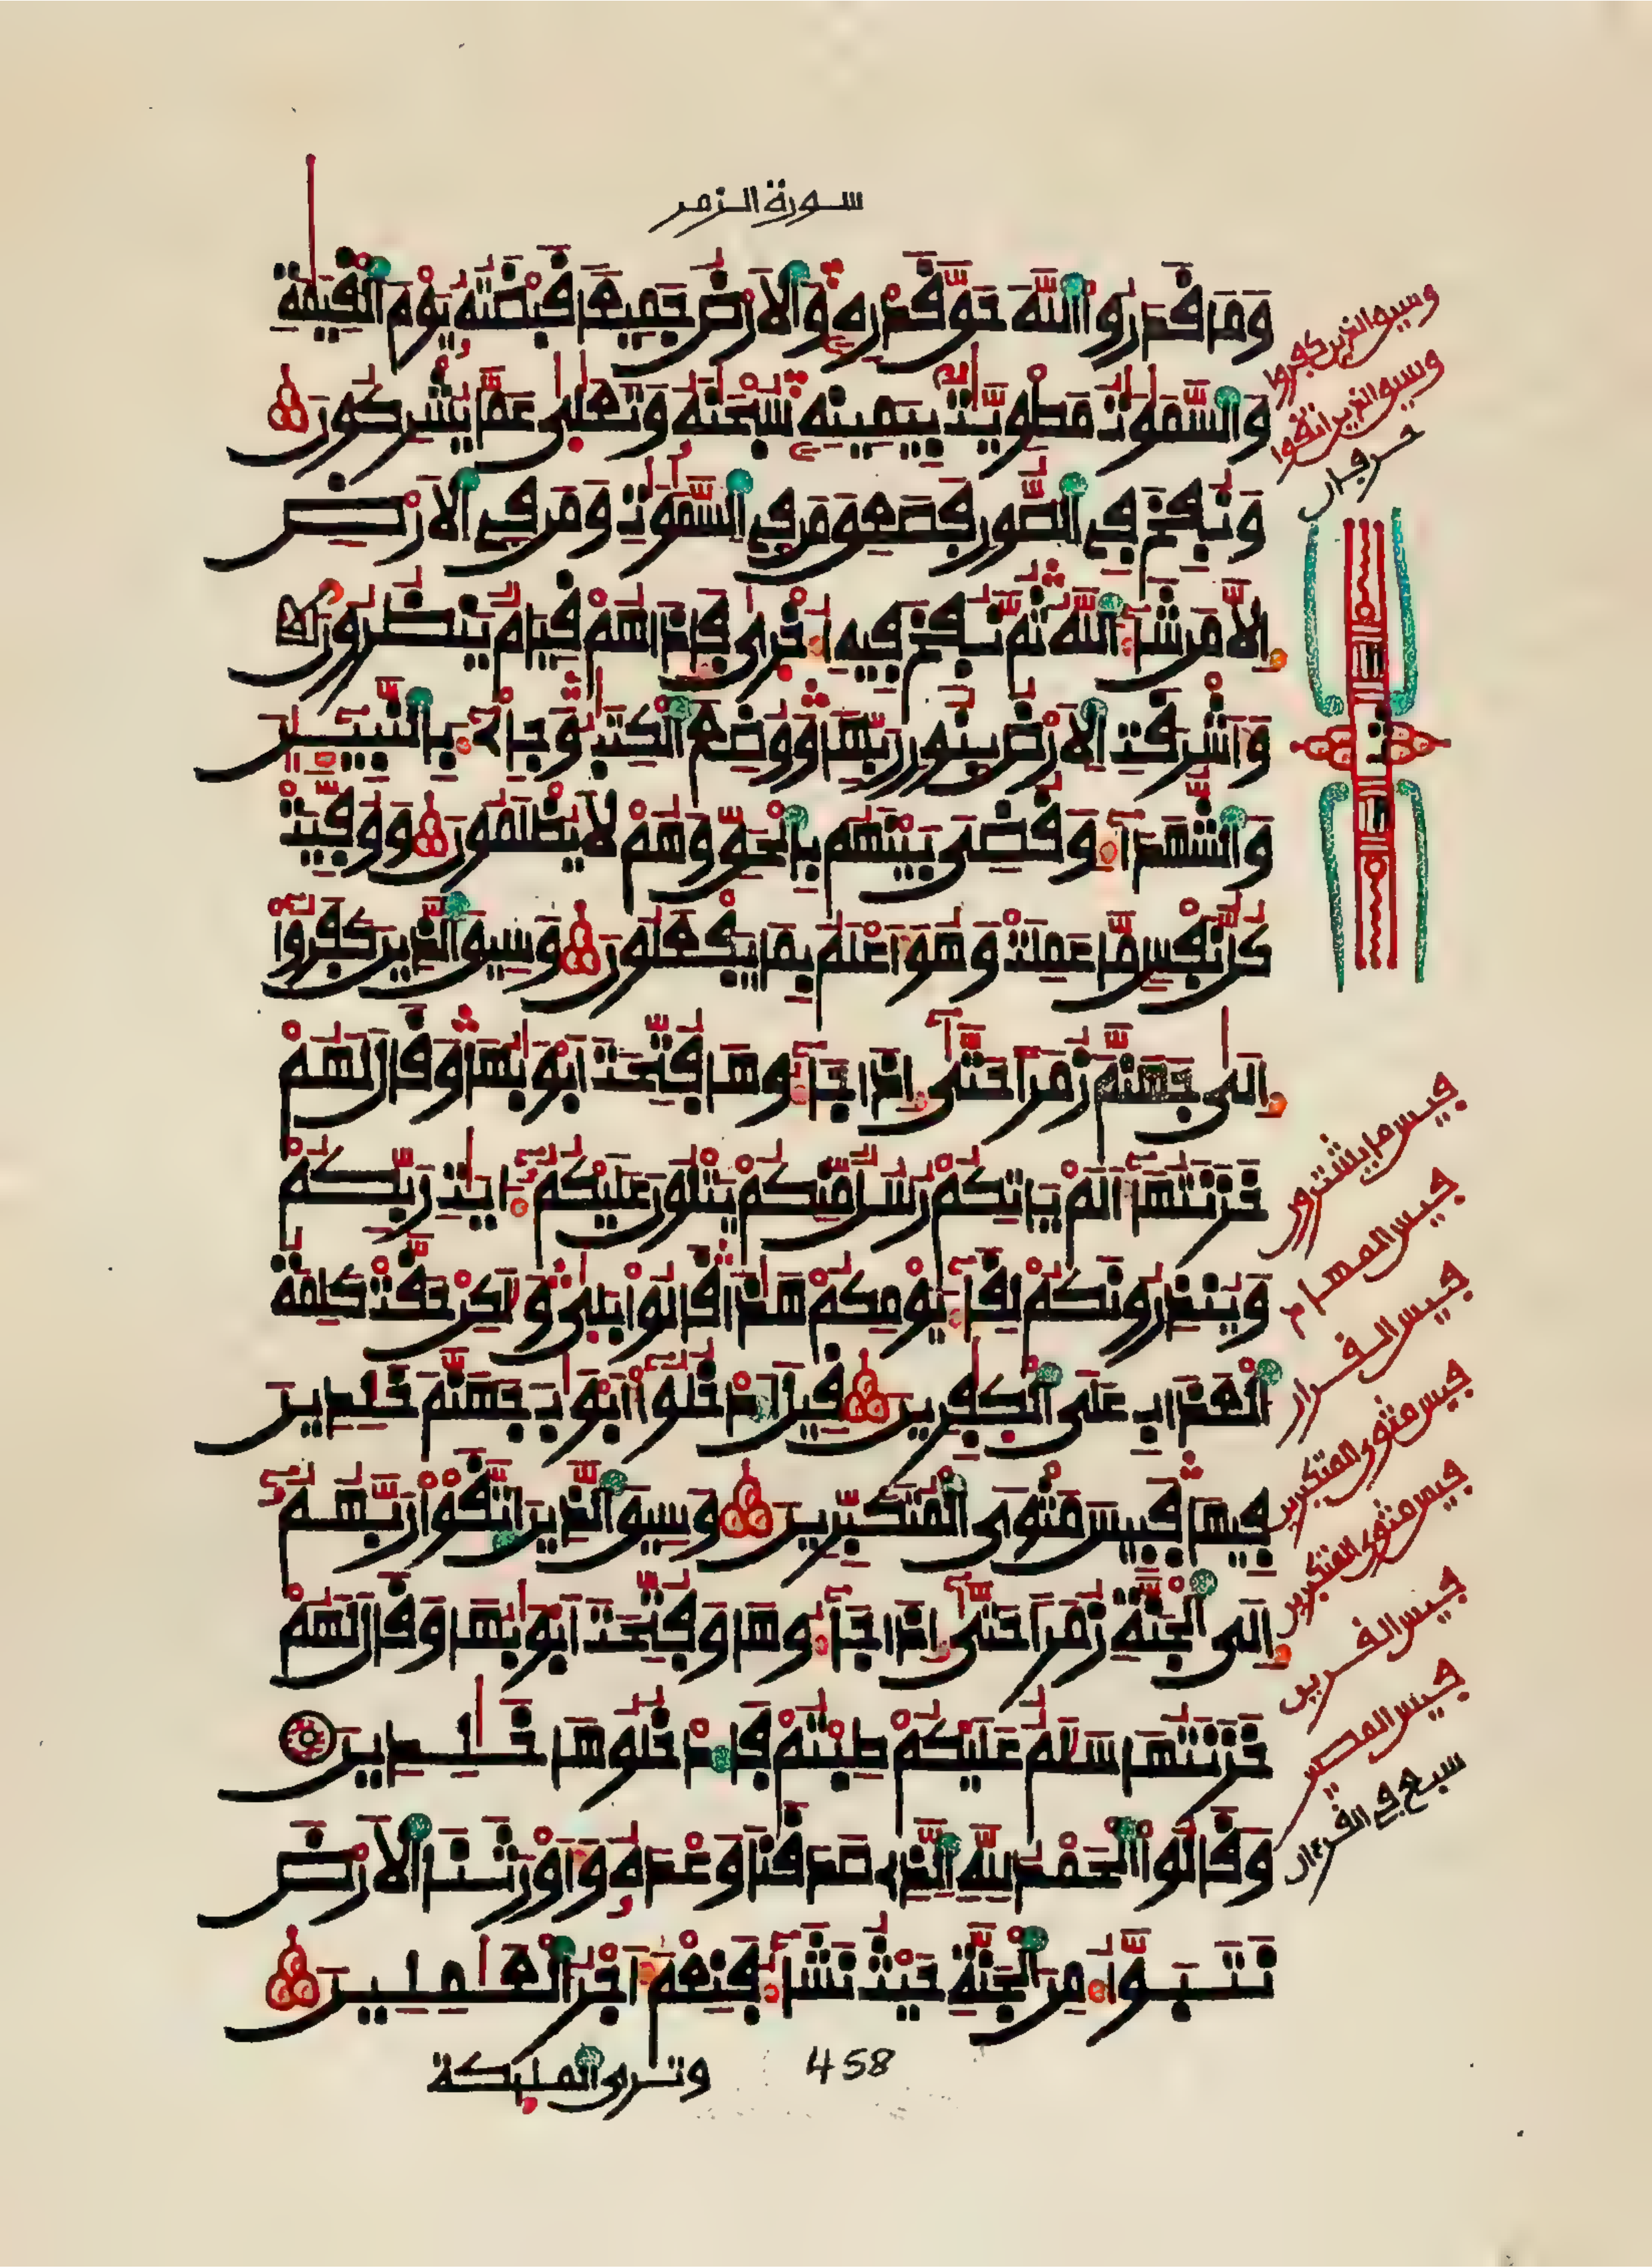 سورة الزمر
وَمَا قَدَرُوا۟ اللَّهَ حَقَّ قَدْرِهِ وَالَارْضُ جَمِيعًا قَبْضَتُهُ يَوْمَ الْقِيَمَةِ
وَالسَّمَوَتُ مَطْوِيَّتٌ بِيَمِينِهِ سُبْحَنَهُ وَتَعَلَى عَمَّا يُشْرِكُونَ
وَنُفِخَ فِي الصُّورِ فَصَعِقَ مَن فِي السَّمَوَتِ وَمَن فِي الَارْضِ
إِلَّا مَن شَآءَ اللَّهُ ثُمَّ نُفِخَ فِيهِ أُخْرَى فَإِذَا هُمْ قِيَامٌ يَنظُرُونَ
وَأَشْرَقَتِ الَارْضُ بِنُورِ رَبِّهَا وَوُضِعَ الْكِتَبُ وَجِاْيٓءَ بِالنَّبِيـِٕينَ
وَالشُّهَدَآءِ وَقُضِيَ بَيْنَهُم بِالْحَقِّ وَهُمْ لَا يُظْلَمُونَ وَوُفِّيَتْ
كُلُّ نَفْسٍ مَّا عَمِلَتْ وَهُوَ أَعْلَمُ بِمَا يَفْعَلُونَ وَسِيقَ الَّذِينَ كَفَرُوٓا۟
إِلَى جَهَنَّمَ زُمَرًا حَتَّىٓ إِذَا جَآءُوهَا فُتِّحَتَ ابْوَبُهَا وَقَالَ لَهُمْ
خَزَنَتُهَآ أَلَمْ يَاتِكُمْ رُسُلٌ مِّنكُمْ يَتْلُونَ عَلَيْكُمُۥٓ ءَايَتِ رَبِّكُمْ
وَيُنذِرُونَكُمْ لِقَآءَ يَوْمِكُمْ هَذَا قَالُوا۟ بَلَى وَلَكِنْ حَقَّتْ كَلِمَةُ
الْعَذَابِ عَلَى الْكَفِرِينَ قِيلَ ادْخُلُوٓا۟ أَبْوَبَ جَهَنَّمَ خَلِدِينَ
فِيهَا فَبِيسَ مَثْوَى الْمُتَكَبِّرِينَ وَسِيقَ الَّذِينَ اتَّقَوْا۟ رَبَّهُمُۥٓ
إِلَى الْجَنَّةِ زُمَرًا حَتَّىٓ إِذَا جَآءُوهَا وَفُتِّحَتَ ابْوَبُهَا وَقَالَ لَهُمْ
خَزَنَتُهَا سَلَمٌ عَلَيْكُمْ طِبْتُمْ فَادْخُلُوهَا خَلِدِينَ
وَقَالُوا۟ الْحَمْدُ لِلَّهِ الَّذِي صَدَقَنَا وَعْدَهُ وَأَوْرَثَنَا الَارْضَ
نَتَبَوَّأُ مِنَ الْجَنَّةِ حَيْثُ نَشَآءُ فَنِعْمَ أَجْرُ الْعَمِلِينَ
458
وترى الملئكة
وسيق الذين كفروا
وسيق الذين اتقوا
حرفان
فبيس ما يشترون
فبيس المهاد
فبيس القرار
فبيس مثوى المتكبرين
فبيس مثوى المتكبرين
فبيس القرين
فبيس المصير
سبع في القرءان